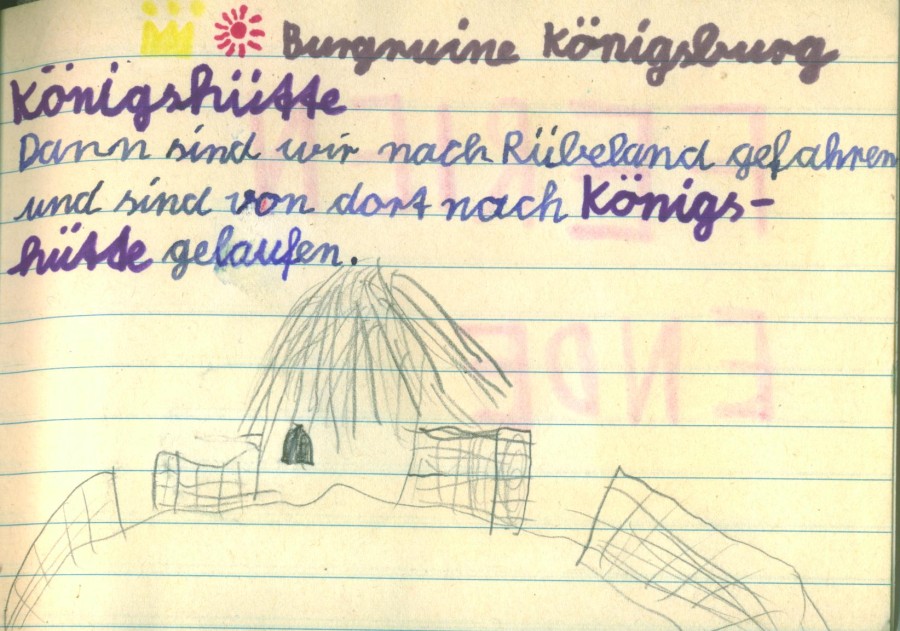 Burgruine Königsburg
Königshütte
Dann sind wir nach Rübeland gefahren
und sind von dort nach Königs-
hütte gelaufen.